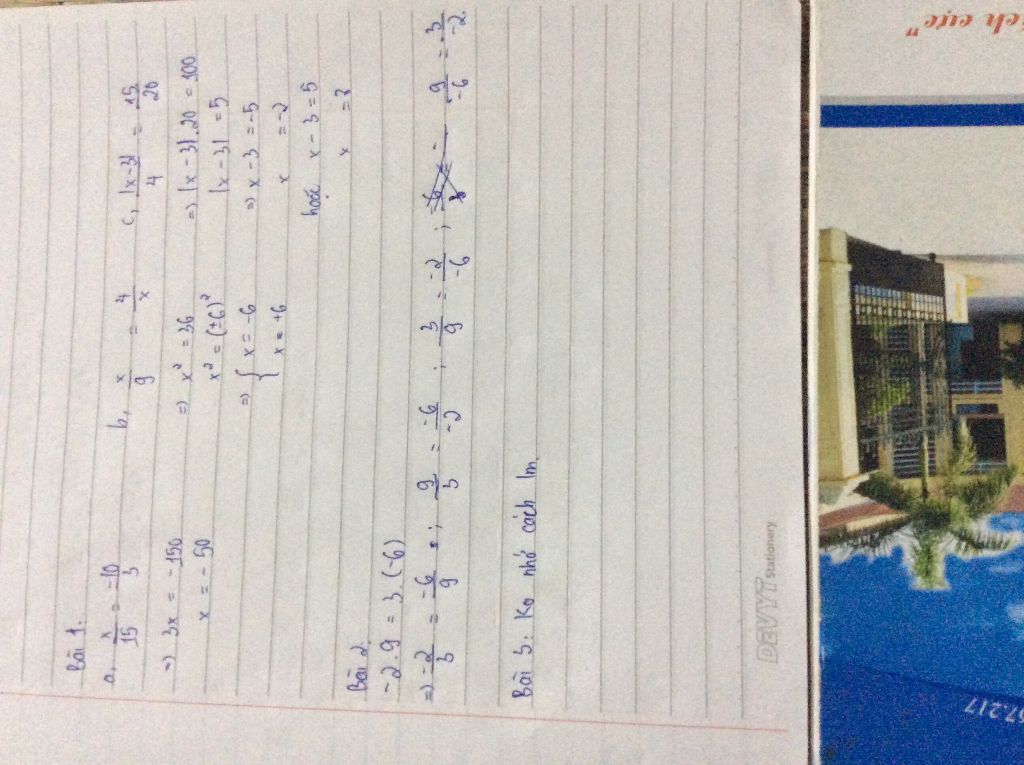 Bài 1.
a, x/15 = -10/3
=> 3x = -150
x = -50
b, x/9 = 4/x
=> x² = 36
x² = (±6)²
=> { x = -6
x = +6
c, |x-3|/4 = 15/20
=> |x-3|.20 = 100
|x-3| = 5
=> x-3 = -5
x = -2
hoặc x-3 = 5
x =
Bài 2.
-2.9 = 3.(-6)
=> -2/3 = -6/9 ; 9/3 = -6/-2 ; 3/9 = -2/-6 ; 9/-6 = 3/-2
Bài 3: Ko nhớ cách lm.
DEVYT Stationery
cực"
67.217